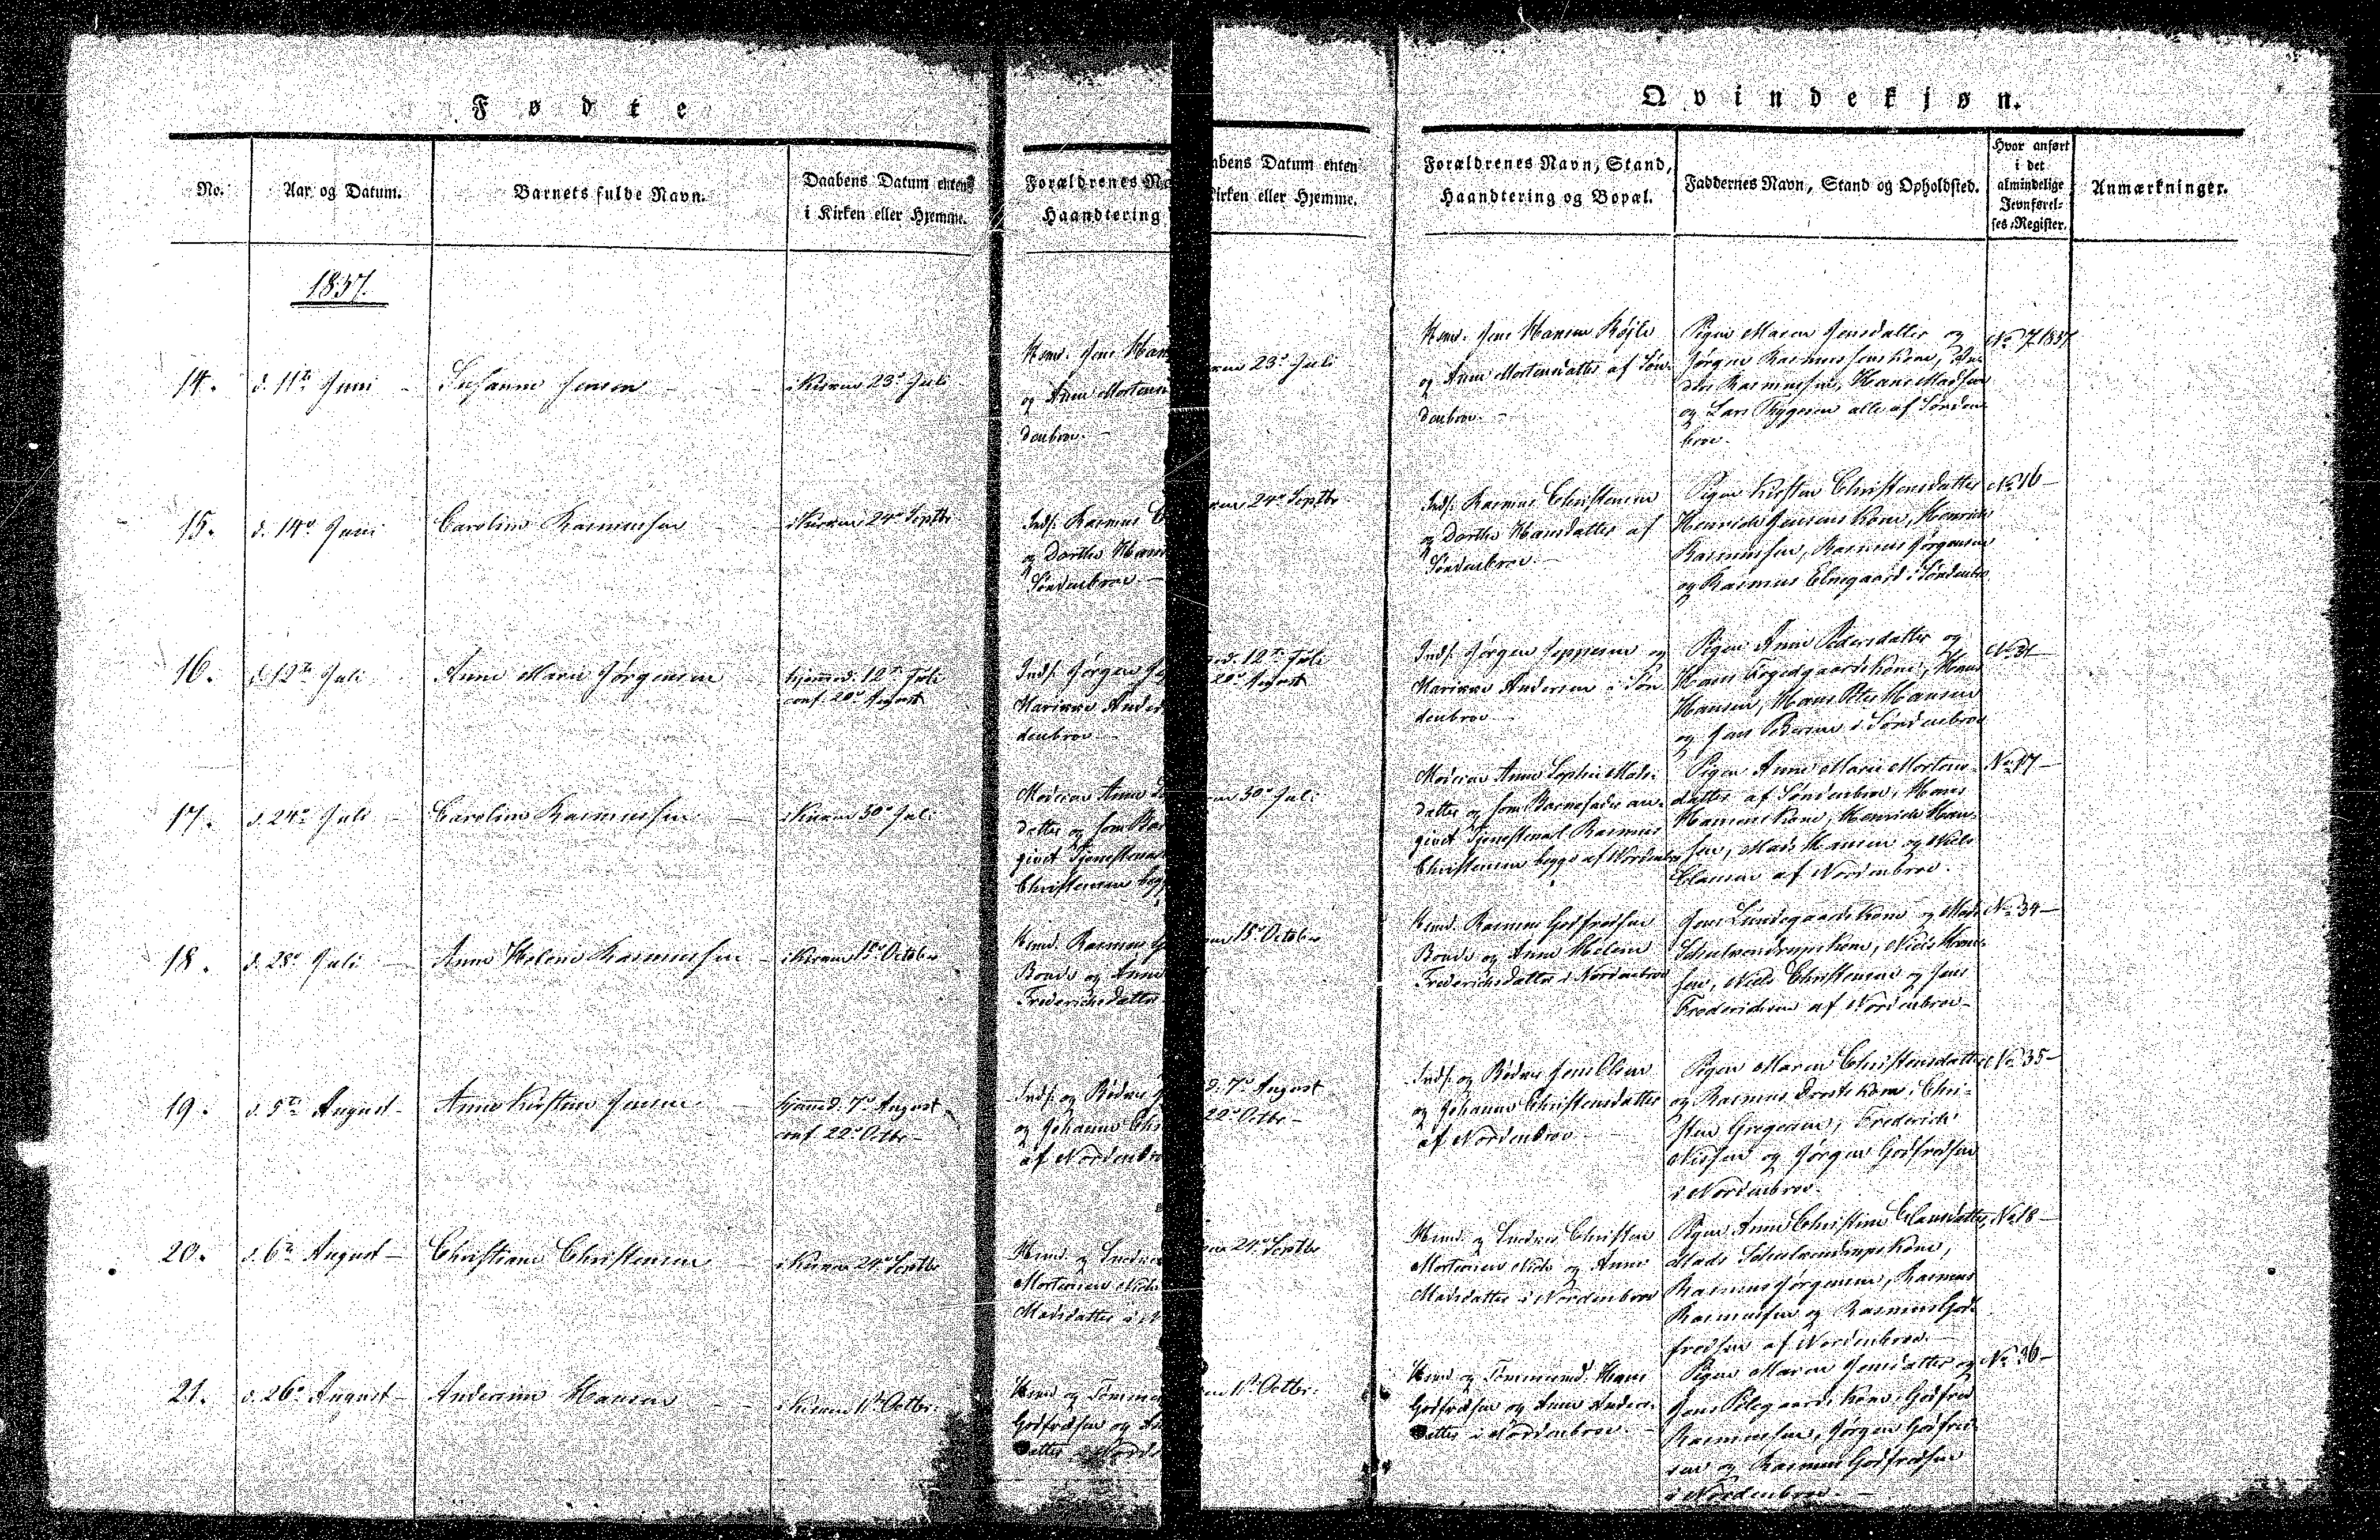 Fødte
Qvindekjøn.
No.
Aar og Datum.
Barnets fulde Navn.
Daabens Datum enten
i Kirken eller Hjemme.
Forældrenes Na
Haandtering
abens Datum enten
Kirken eller Hjemme.
Forældrenes Navn, Stand,
Haandtering og Bopæl.
Faddernes Navn, Stand og Opholdsted.
Hvor anført
i det
almindelige
Jevnførel-
ses-Register.
Anmærkninger.
1837.
14.
d. 11te Juni
Susanne Jensen
i Kirken 23d Juli
Hmd. Jens Han
og Anne Mortens
denbroe.
23d Juli
Hmd. Jens Hansen Køjle
og Anne Mortensdatter af Søn-
denbroe.
Pigen Maren Jensdatter og
Jørgen Rasmussens Kone, An-
ders Rasmussen, Hans Madsen
og Lars Thygesen alle af Sønden-
broe.
No 7 1837
15.
d. 14d Juni
Caroline Rasmussen
i Kirken 24d Septbr
Inds. Rasmus C
og Dorthe Hans
Søndenbroe
24d Septbr
Inds. Rasmus Christensen
og Dorthe Hansdatter af
Søndenbroe.
Pigen Kirsten Christensdatter
Henrich Jensens Kone, Henrich
Rasmussen, Rasmus Jørgensen
og Rasmus Elvegaard i Søndenbro
No 16
16.
d. 12te Juli
Anne Marie Jørgensen
hjemmed. 12te Juli
conf. 20d August
Inds. Jørgen Je
Karinne Ander
denbroe
d. 12te Juli
20d August
Inds. Jørgen Jeppesen og
Karinne Andersen i Søn-
denbroe
Pigen Anne Pedersdatter og
Hans Fogedgaards Kone, Hans
Hansen, Hans Peter Hansen
og Jens Pedersen i Søndenbroe
No 31
17.
d. 24d Juli
Caroline Rasmussen
i Kirken 30d Juli
Moderen Anne So
datter og som Bar
givet Tjenestekarl
Christensen begg
30d Juli
Moderen Anne Sophie Mads-
datter og som Barnefader an-
givet Tjenestekarl Rasmus
Christensen begge af Nordenbro
Pigen Anne Marie Mortens-
datter af Søndenbroe, Hans
Hansens Kone, Henrich Han-
sen, Mads Hansen og Niels
Clausen af Nordenbroe.
No 17
18.
d. 28d Juli
Anne Helene Rasmussen
i Kirken 15d October
Hmd. Rasmus G
Bonde og Anne
Frederichsdatter
15d October
Hmd. Rasmus Godfredsen
Bonde og Anne Helene
Frederichsdatter i Nordenbroe
Jens Lundegaards Kone og Mads
Skulvendrups Kone, Niels Han-
sen, Niels Christensen og Jens
Frederichsen af Nordenbroe
No 34
19.
d. 5te August
Anne Kirstine Jensen
hjemmed. 7d August
conf. 22d Octbr
Inds. og Bødker J
og Johanne Chri
af Nordenbro
d. 7d August
22d Octbr
Inds. og Bødker Jens Olsen
og Johanne Christensdatter
af Nordenbroe
Pigen Maren Christensdatter
og Rasmus Drosts Kone, Chri-
sten Gregersen, Frederich
Nielsen og Jørgen Godfredsen
i Nordenbroe.
No 35
20.
d. 6te August
Christiane Christensen
i Kirken 24d Septbr
Hmd. og Snedker
Mortensen Niels
Madsdatter i N
24d Septbr
Hmd. og Snedker Christen
Mortensen Niels og Anne
Madsdatter i Nordenbroe
Pigen Anne Christine Clausdatter
Mads Skulvendrups Kone,
Rasmus Jørgensen, Rasmus
Rasmussen og Rasmus God-
fredsen af Nordenbroe.
No 18
21.
d. 26d August
Andersine Hansen
i Kirken 1ste Octbr.
Hmd. og Tømmer
Godfredsen og An
datter i Norde
1ste Octbr.
Hmd. og Tømmermd. Hans
Godfredsen og Anne Anders-
datter i Nordenbroe.
Pigen Maren Jensdatter og
Jens Pilegaards Kone, Godfred
Rasmussen, Jørgen Godfred-
sen og Rasmus Godfredsen
i Nordenbroe.
No 36